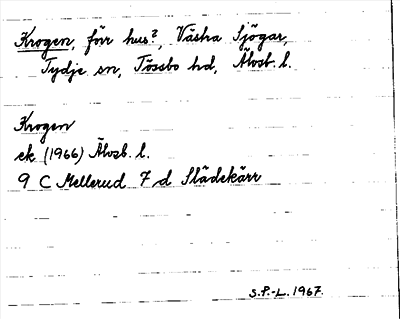 Krogen, förr hus?, Västra Sjögar,
Tydje sn, Tössbo hd, Älvsb. l.
Krogen
ek (1966) Älvsb. l.
9 C Mellerud 7 d Slädekärr
S.P.-L. 1967.